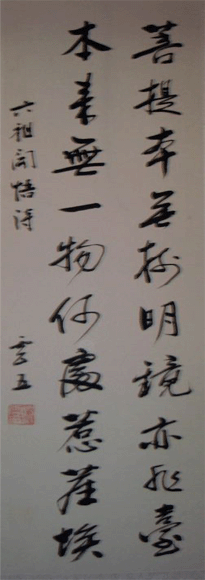 菩提本无樹明鏡亦非臺
本來無一物何處惹塵埃
六祖開悟詩
雲五